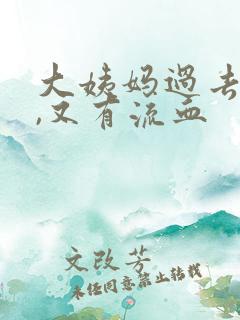 大姨妈过去
,又有流血
文改芳
未经同意禁止转载